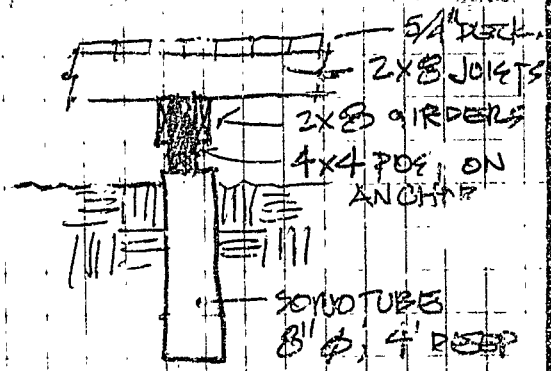 5/4" DECK
2X8 JOISTS
2X8 GIRDERS
4X4 POST ON
ANCHOR
SONOTUBE
8" Ø, 4' DEEP